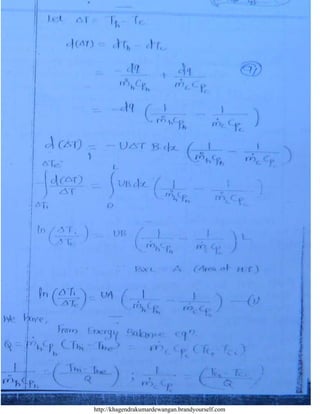 Let ΔT = Th - Tc
d(ΔT) = dTh - dTc
= - dq/ṁhCph + dq/ṁcCpc
= - dq (1/ṁhCph - 1/ṁcCpc)
d(ΔT) = - UΔT B dx (1/ṁhCph - 1/ṁcCpc)
∫ d(ΔT)/ΔT = ∫ UB dx (1/ṁhCph - 1/ṁcCpc)
ln (ΔTi/ΔTe) = UB (1/ṁhCph - 1/ṁcCpc) L
∵ BxL = A (Area of H.T)
ln (ΔTi/ΔTe) = UA (1/ṁhCph - 1/ṁcCpc) —(1)
We have,
From Energy Balance eqn
Q = ṁhCph (Thi - The) = ṁcCpc (Tce - Tci)
1/ṁhCph = (Thi - The / Q) ; 1/ṁcCpc = (Tce - Tci / Q)
http://khagendrakumardewangan.brandyourself.com